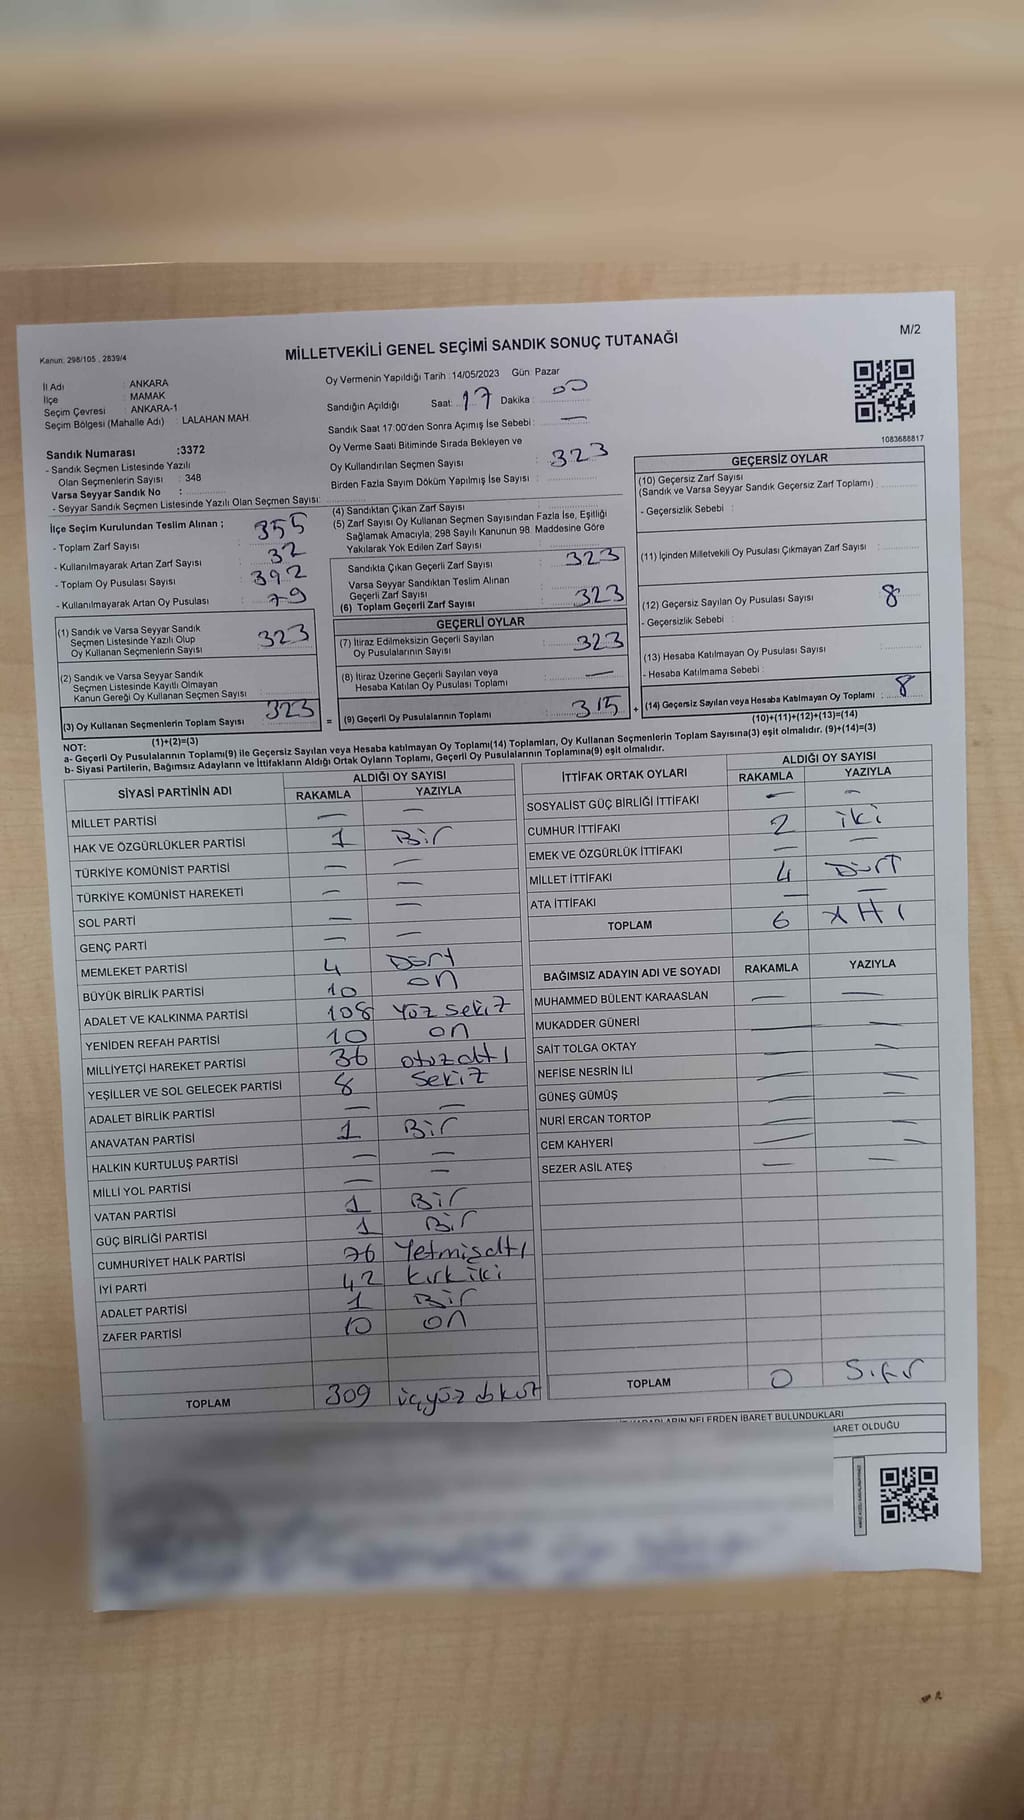 Kanun: 298/105 , 2839/4
MİLLETVEKİLİ GENEL SEÇİMİ SANDIK SONUÇ TUTANAĞI
M/2
İl Adı : ANKARA
İlçe : MAMAK
Seçim Çevresi : ANKARA-1
Seçim Bölgesi (Mahalle Adı) : LALAHAN MAH.
Sandık Numarası :3372
- Sandık Seçmen Listesinde Yazılı
Olan Seçmenlerin Sayısı : 348
Varsa Seyyar Sandık No :
- Seyyar Sandık Seçmen Listesinde Yazılı Olan Seçmen Sayısı:
Oy Vermenin Yapıldığı Tarih : 14/05/2023 Gün: Pazar
Sandığın Açıldığı Saat: 17 Dakika : 00
Sandık Saat 17.00'den Sonra Açımış İse Sebebi : —
Oy Verme Saati Bitiminde Sırada Bekleyen ve
Oy Kullandırılan Seçmen Sayısı : 323
Birden Fazla Sayım Döküm Yapılmış İse Sayısı :
1083688817
İlçe Seçim Kurulundan Teslim Alınan ;
- Toplam Zarf Sayısı : 355
- Kullanılmayarak Artan Zarf Sayısı : 32
- Toplam Oy Pusulası Sayısı : 392
- Kullanılmayarak Artan Oy Pusulası : 79
(1) Sandık ve Varsa Seyyar Sandık
Seçmen Listesinde Yazılı Olup
Oy Kullanan Seçmenlerin Sayısı : 323
(2) Sandık ve Varsa Seyyar Sandık
Seçmen Listesinde Kayıtlı Olmayan
Kanun Gereği Oy Kullanan Seçmen Sayısı :
(3) Oy Kullanan Seçmenlerin Toplam Sayısı : 323
(1)+(2)=(3)
(4) Sandıktan Çıkan Zarf Sayısı :
(5) Zarf Sayısı Oy Kullanan Seçmen Sayısından Fazla İse, Eşitliği
Sağlamak Amacıyla; 298 Sayılı Kanunun 98. Maddesine Göre
Yakılarak Yok Edilen Zarf Sayısı :
Sandıkta Çıkan Geçerli Zarf Sayısı : 323
Varsa Seyyar Sandıktan Teslim Alınan
Geçerli Zarf Sayısı :
(6) Toplam Geçerli Zarf Sayısı : 323
GEÇERLİ OYLAR
(7) İtiraz Edilmeksizin Geçerli Sayılan
Oy Pusulalarının Sayısı : 323
(8) İtiraz Üzerine Geçerli Sayılan veya
Hesaba Katılan Oy Pusulası Toplamı : —
= (9) Geçerli Oy Pusulalarının Toplamı : 315 +
GEÇERSİZ OYLAR
(10) Geçersiz Zarf Sayısı
(Sandık ve Varsa Seyyar Sandık Geçersiz Zarf Toplamı) :
- Geçersizlik Sebebi :
(11) İçinden Milletvekili Oy Pusulası Çıkmayan Zarf Sayısı :
(12) Geçersiz Sayılan Oy Pusulası Sayısı : 8
- Geçersizlik Sebebi :
(13) Hesaba Katılmayan Oy Pusulası Sayısı :
- Hesaba Katılmama Sebebi :
(14) Geçersiz Sayılan veya Hesaba Katılmayan Oy Toplamı : 8
(10)+(11)+(12)+(13)=(14)
NOT:
a- Geçerli Oy Pusulalarının Toplamı(9) ile Geçersiz Sayılan veya Hesaba katılmayan Oy Toplamı(14) Toplamları, Oy Kullanan Seçmenlerin Toplam Sayısına(3) eşit olmalıdır. (9)+(14)=(3)
b- Siyasi Partilerin, Bağımsız Adayların ve İttifakların Aldığı Ortak Oyların Toplamı, Geçerli Oy Pusulalarının Toplamına(9) eşit olmalıdır.
SİYASİ PARTİNİN ADI ALDIĞI OY SAYISI
RAKAMLA YAZIYLA
MİLLET PARTİSİ — —
HAK VE ÖZGÜRLÜKLER PARTİSİ 1 Bir
TÜRKİYE KOMÜNİST PARTİSİ — —
TÜRKİYE KOMÜNİST HAREKETİ — —
SOL PARTİ — —
GENÇ PARTİ — —
MEMLEKET PARTİSİ 4 Dört
BÜYÜK BİRLİK PARTİSİ 10 on
ADALET VE KALKINMA PARTİSİ 108 Yüz sekiz
YENİDEN REFAH PARTİSİ 10 on
MİLLİYETÇİ HAREKET PARTİSİ 36 otuzaltı
YEŞİLLER VE SOL GELECEK PARTİSİ 8 Sekiz
ADALET BİRLİK PARTİSİ — —
ANAVATAN PARTİSİ 1 Bir
HALKIN KURTULUŞ PARTİSİ — —
MİLLİ YOL PARTİSİ — —
VATAN PARTİSİ 1 Bir
GÜÇ BİRLİĞİ PARTİSİ 1 Bir
CUMHURİYET HALK PARTİSİ 76 Yetmişaltı
İYİ PARTİ 42 kırkiki
ADALET PARTİSİ 1 Bir
ZAFER PARTİSİ 10 on
TOPLAM 309 üçyüz dokuz
İTTİFAK ORTAK OYLARI ALDIĞI OY SAYISI
RAKAMLA YAZIYLA
SOSYALİST GÜÇ BİRLİĞİ İTTİFAKI — —
CUMHUR İTTİFAKI 2 iki
EMEK VE ÖZGÜRLÜK İTTİFAKI — —
MİLLET İTTİFAKI 4 Dört
ATA İTTİFAKI — —
TOPLAM 6
BAĞIMSIZ ADAYIN ADI VE SOYADI RAKAMLA YAZIYLA
MUHAMMED BÜLENT KARAASLAN — —
MUKADDER GÜNERİ — —
SAİT TOLGA OKTAY — —
NEFİSE NESRİN İLİ — —
GÜNEŞ GÜMÜŞ — —
NURİ ERCAN TORTOP — —
CEM KAHYERİ — —
SEZER ASİL ATEŞ — —
TOPLAM 0 Sıfır
NELERDEN İBARET BULUNDUKLARI
OLDUĞU